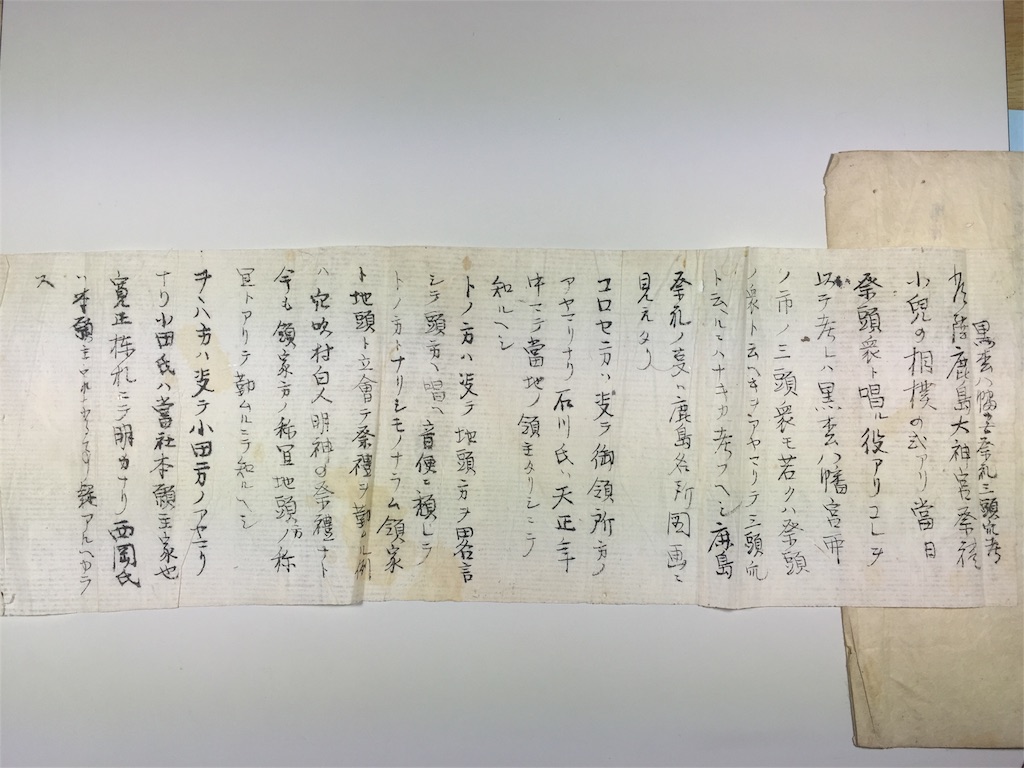 黒岩八幡宮祭礼三頭衆考
常陸鹿島大神宮祭礼
小兒の相撲の式アリ當日
祭頭衆ト唱ル役アリコレヲ
以テ考レハ黒岩八幡宮
ノ三頭衆モ若クハ祭頭
ノ衆ト云ヘキヲアヤマリテ三頭衆
ト云ヘルニハナキカ考フヘシ鹿島
祭礼ノ事ハ鹿島名所図画ニ
見えタリ
コロセ方ハ御領所方ノ
アヤマリナリ石川氏ハ天正年
中マテ當地ノ領主タリシニテ
知ルヘシ
トノ方ハ地頭方ヲ畧言
シテ頭方ト唱ヘ音便ニ頽レテ
トノ方トナリシモノナラム領家
ト地頭ト立會テ祭禮ヲ勤ムル例
ハ穴吹村白人明神の祭禮ナト
今も領家方ノ祢宜地頭方ノ祢
宜トアリテ勤ムルニテ知ルヘシ
ヲハ方ハ小田方ノアヤマリ
ナリ小田氏ハ當社本願主家也
寛正棟札ニテ明カナリ西岡氏
ハ本願主アルヘカラ
ス